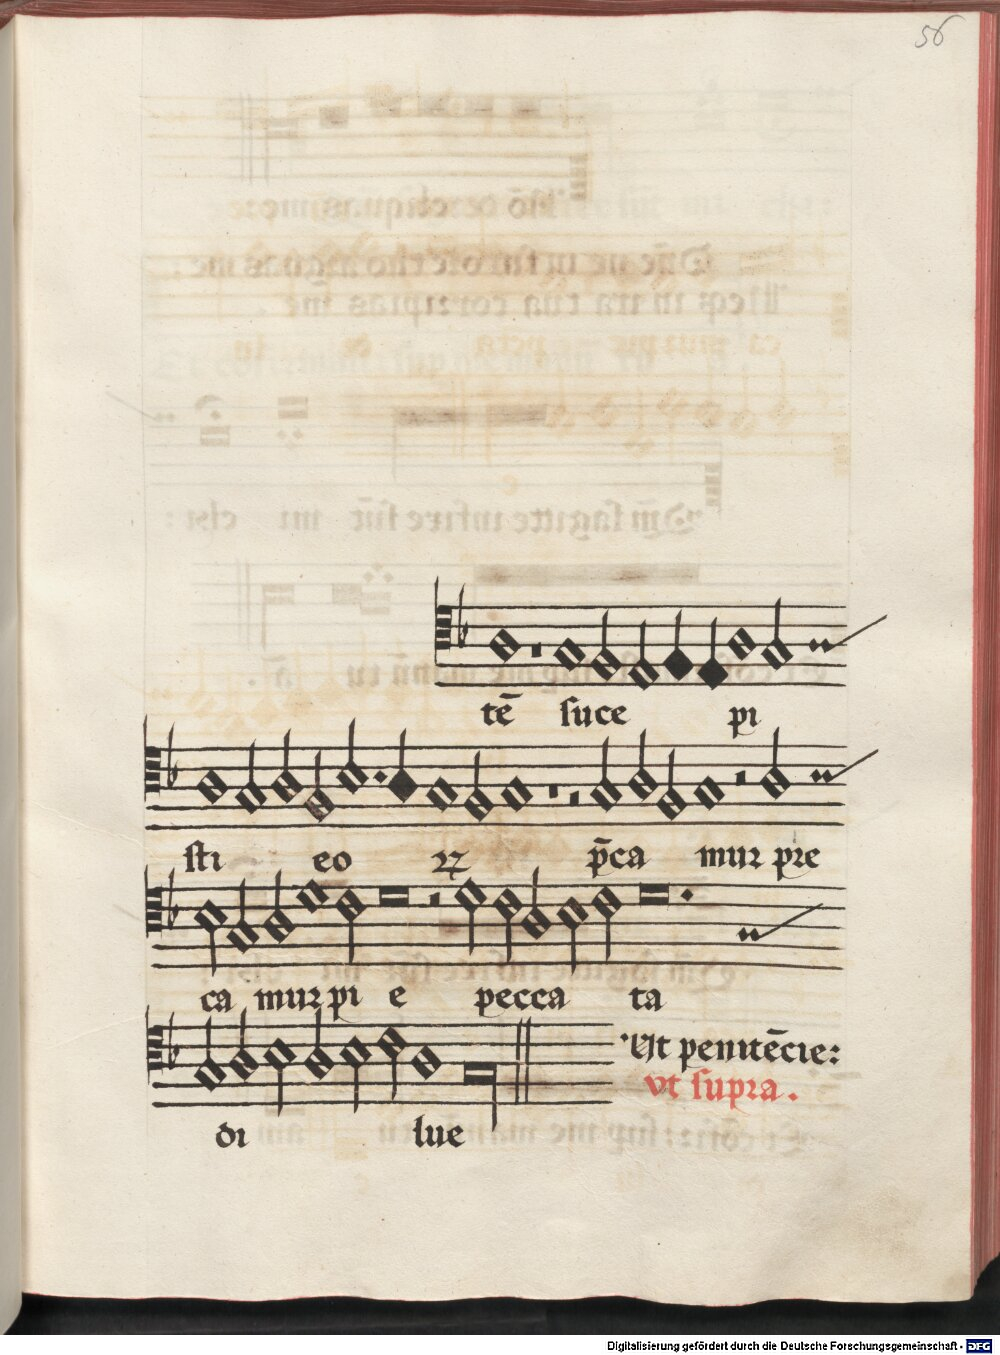 56
tē suce pi
sti eo ꝝ p̄ca mur pre
ca mur pi e pecca ta
Ut penitēcie:
vt supra.
di lue
Digitalisierung gefördert durch die Deutsche Forschungsgemeinschaft - DFG